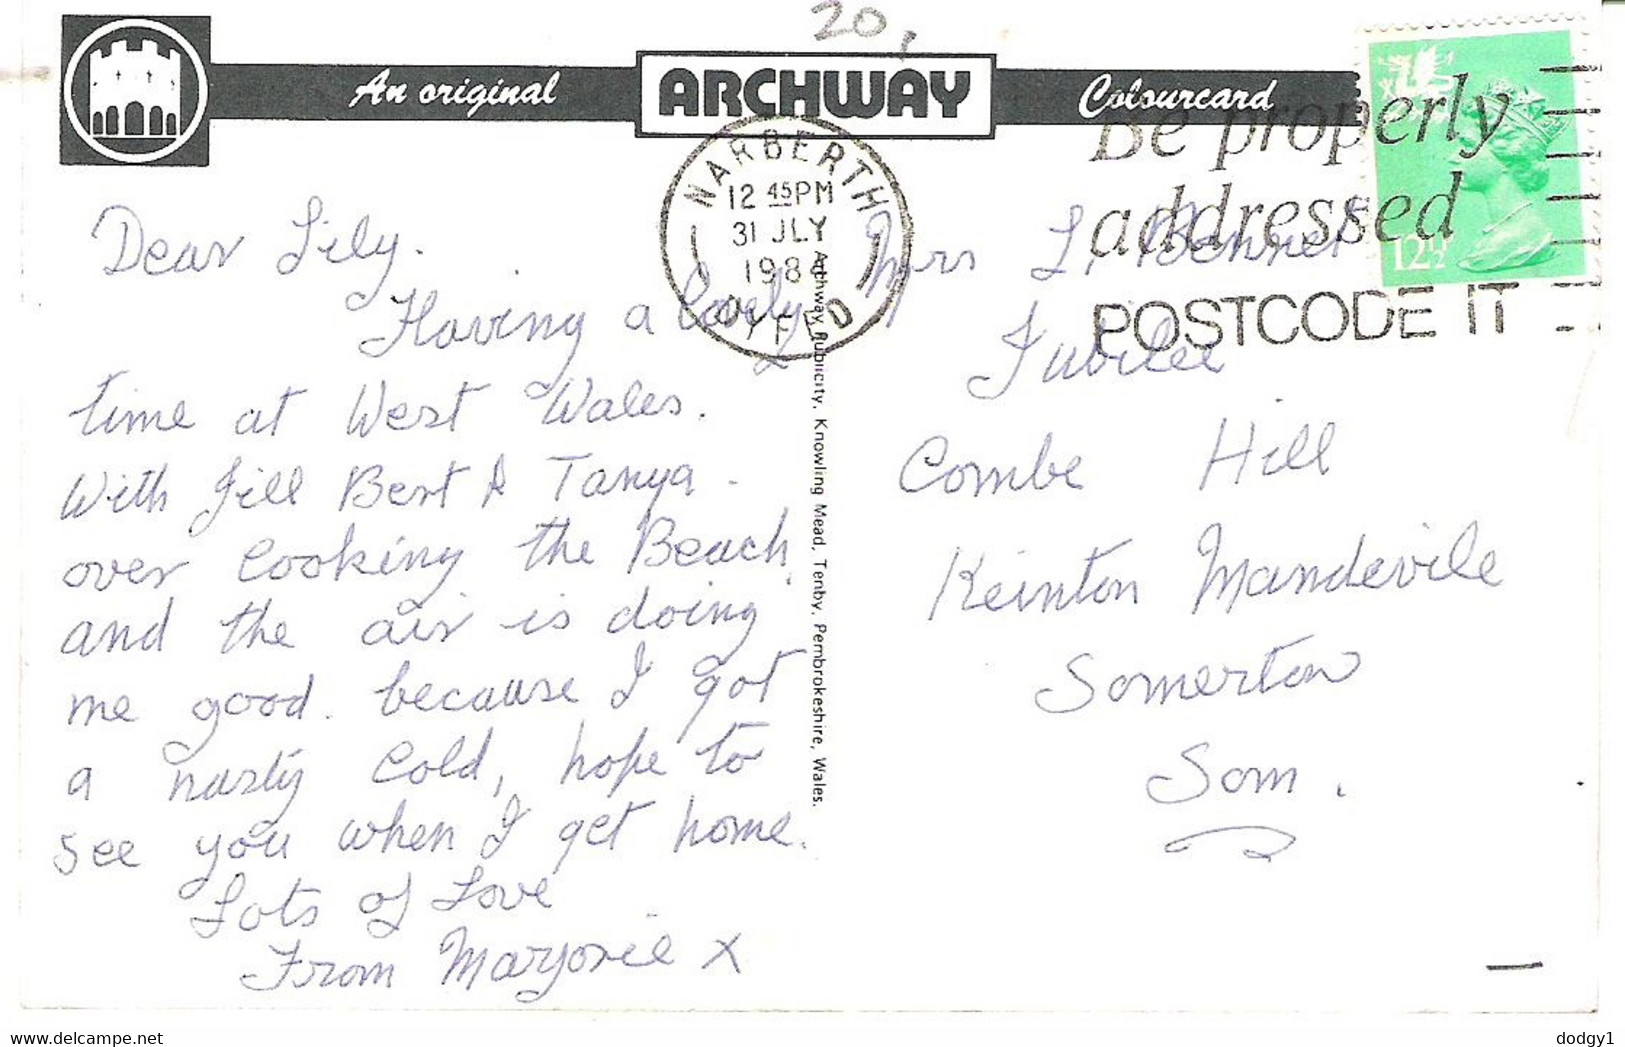 20,
An original ARCHWAY Colourcard
NARBERTH
12 45PM
31 JLY
1984
DYFED
Be properly
addressed
POSTCODE IT
12½
Dear Lily.
Having a lovely
time at West Wales.
With Jill Bert & Tanya.
over Cooking the Beach,
and the air is doing
me good. because I got
a nasty Cold, hope to
see you when I get home.
Lots of Love
From Marjorie X
Archway Publicity, Knowling Mead, Tenby, Pembrokeshire, Wales.
Mrs L. Bonner
Jubilee
Combe Hill
Keinton Mandevile
Somerton
Som.
www.delcampe.net
dodgy1